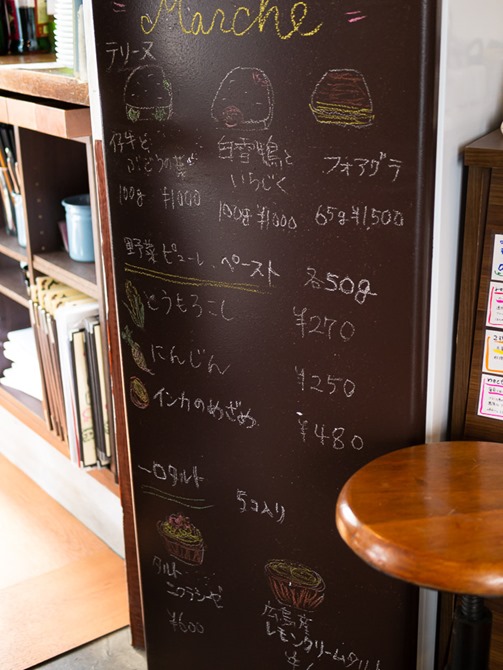 Marche
テリーヌ
仔牛と
ぶどうの葉
100g ¥1000
白雪鴨と
いちじく
100g ¥1000
フォアグラ
65g ¥1,500
野菜ピューレ、ペースト 各50g
とうもろこし ¥270
にんじん ¥250
インカのめざめ ¥480
一口タルト 5コ入り
タルト
ニクラシーゼ
¥600
広島産
レモンクリームタルト